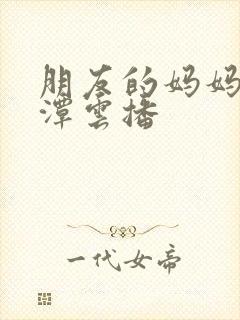 朋友的妈妈
潭雲播
一代女帝